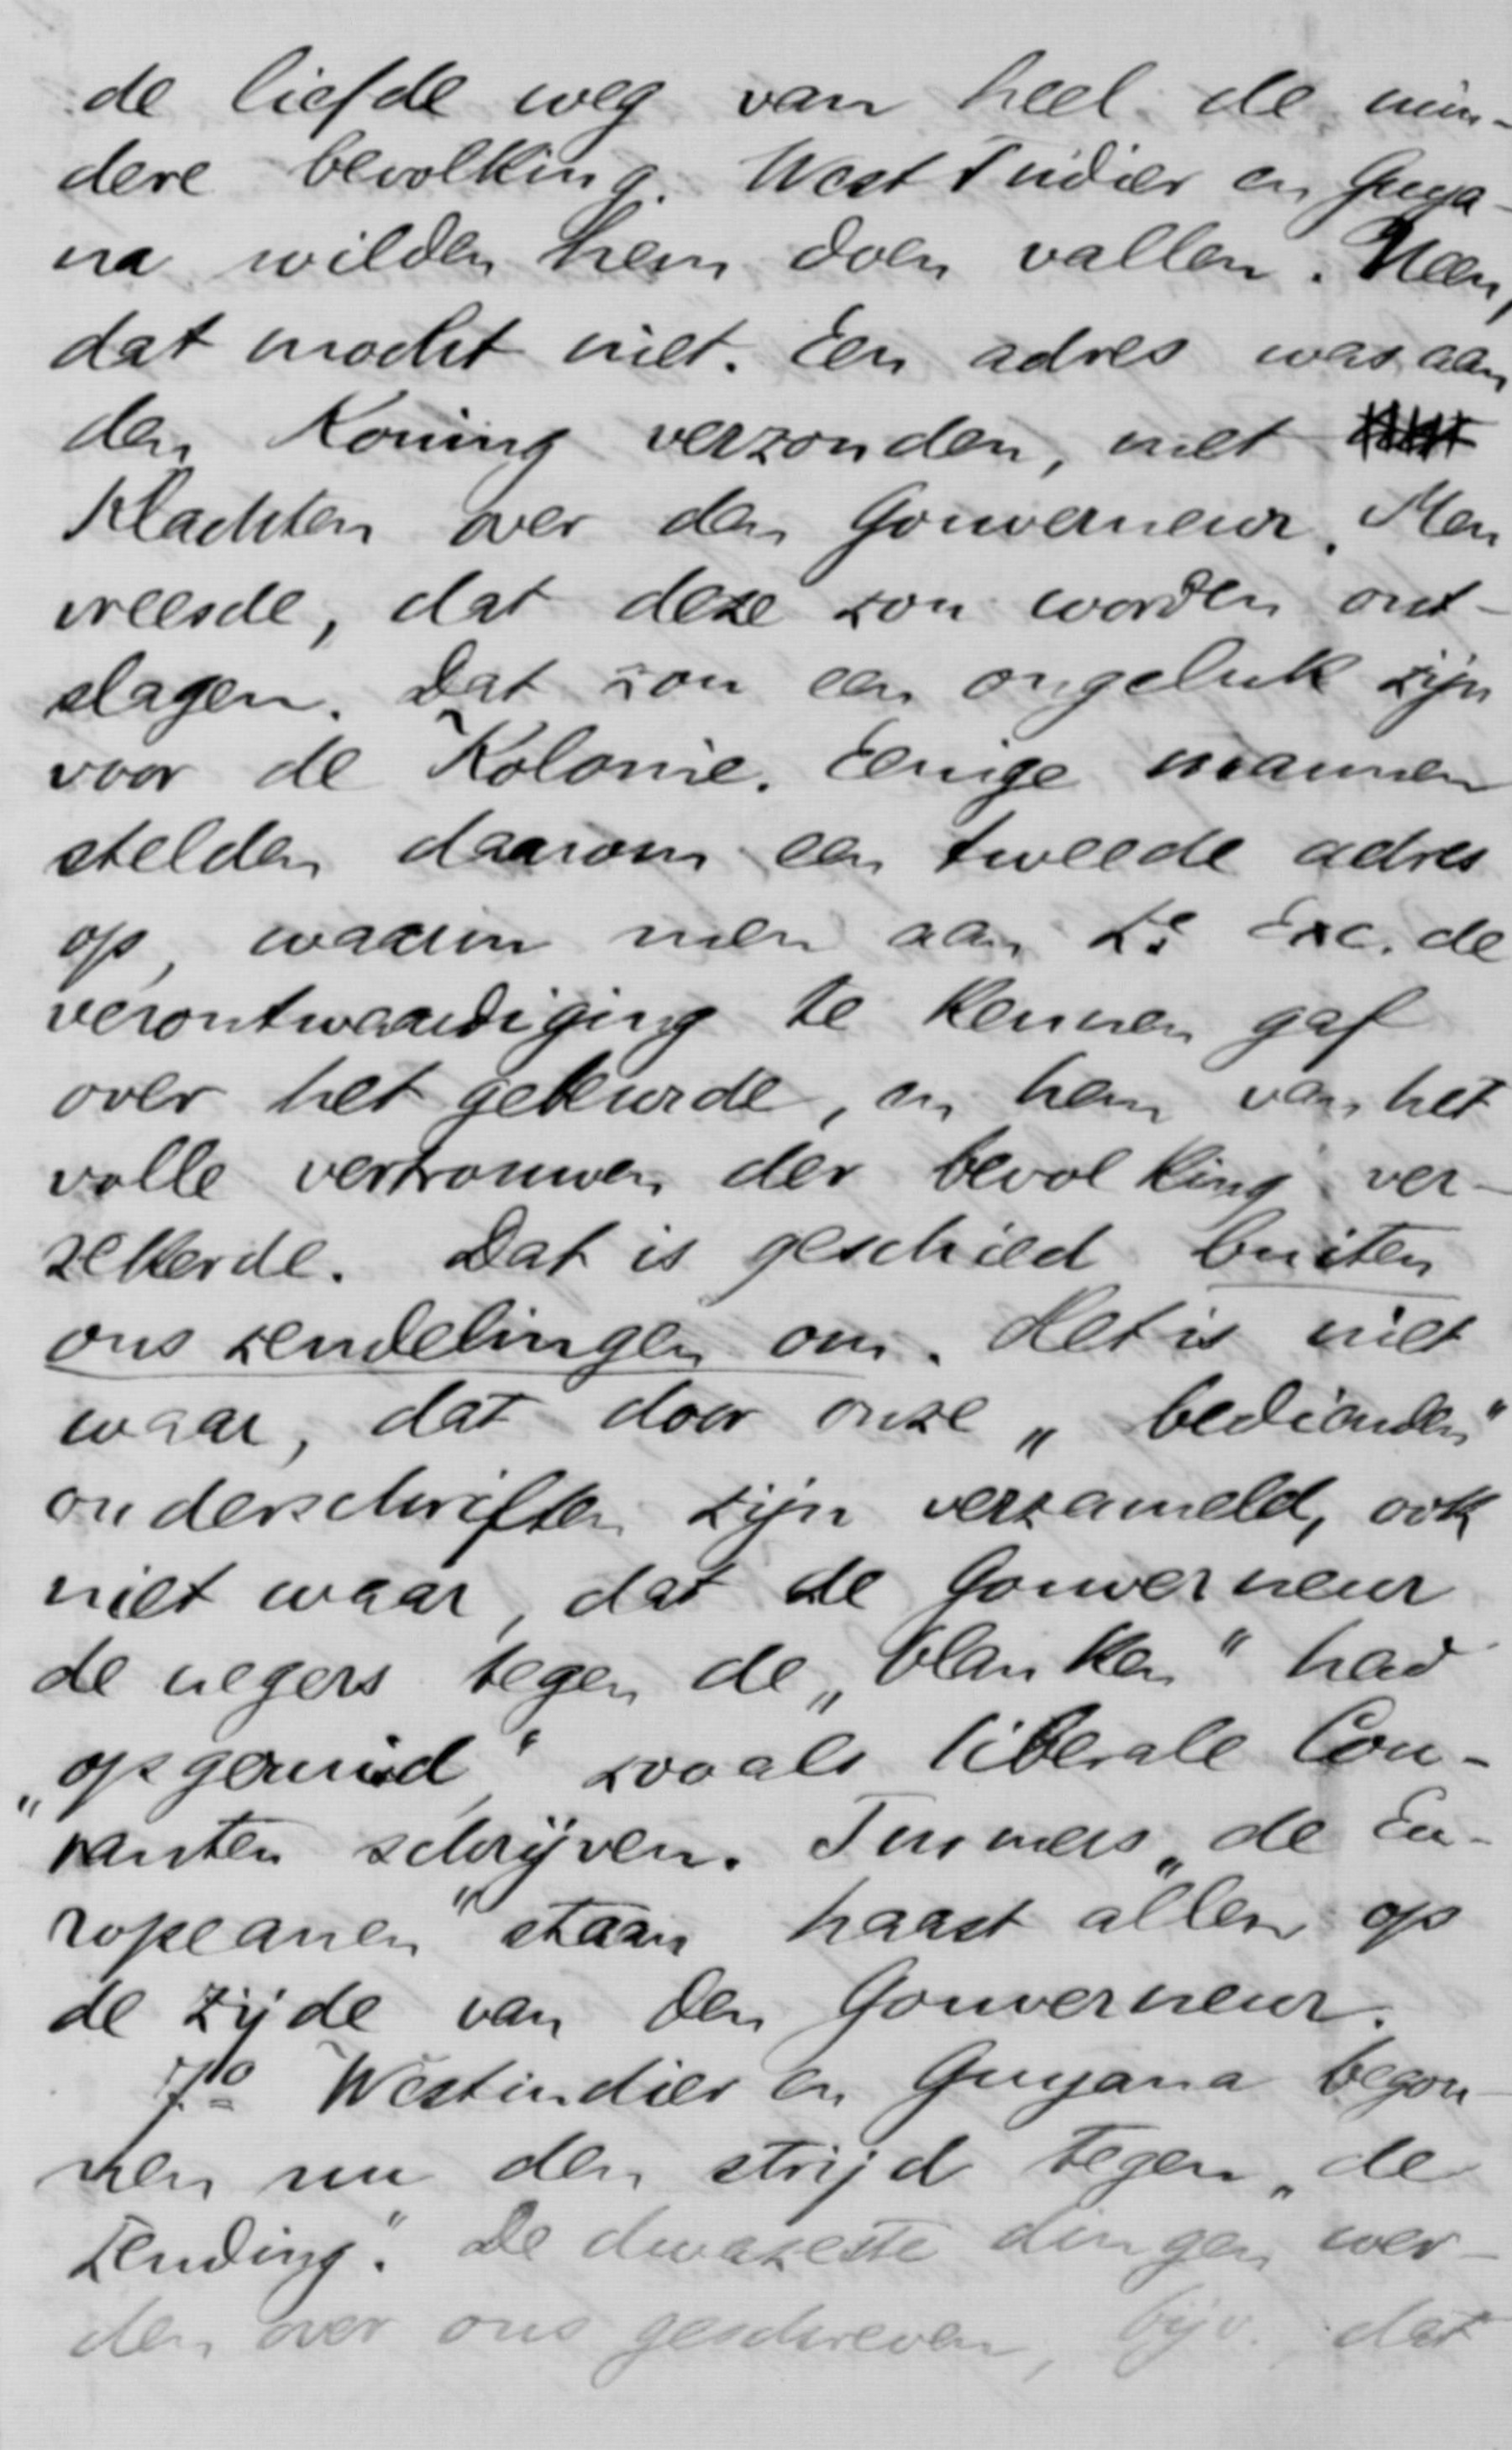 de liefde weg van heel de min-
dere bevolking. West Indiër en Guya-
na wilden hem doen vallen. Neen,
dat mocht niet. Een adres was aan
den Koning verzonden, met
Klachten over den Gouverneur. Men
vreesde, dat deze zou worden ont-
slagen. Dat zou een ongeluk zijn
voor de Kolonie. Eenige mannen
stelden daarom een tweede adres
op, waarin men aan Ze Exc. de
verontwaardiging te kennen gaf
over het gebeurde, en hem van het
volle vertrouwen der bevolking ver-
zekerde. Dat is geschied buiten
ons zendelingen om. Het is niet
waar, dat door onze „bedienden"
onderschriften zijn verzameld, ook
niet waar, dat de Gouverneur
de negers tegen de „blanken" had
„opgeruid", zooals liberale Cou-
ranten schrijven. Immers „de Eu-
ropeanen" staan haast allen op
de zijde van den Gouverneur.
7o Westindiër en Guyana begon-
nen nu den strijd tegen „de
Zending". De dwazeste dingen wer-
den over ons geschreven, bijv. dat